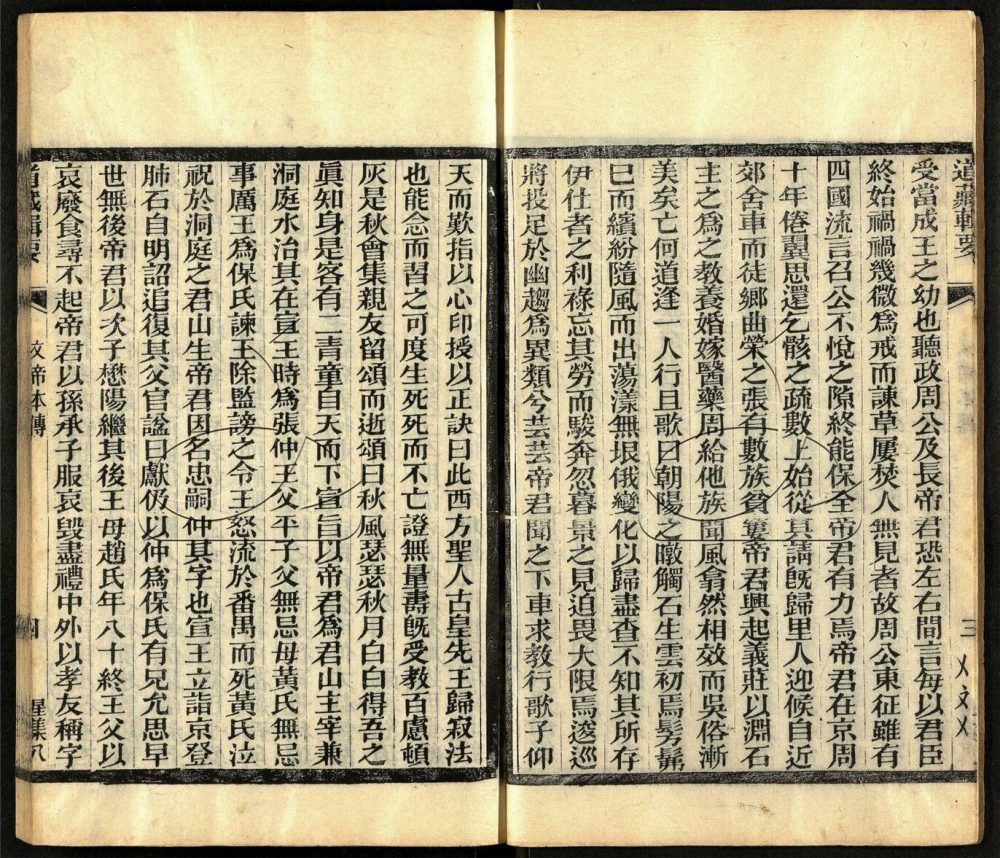 道藏輯要
三
受當成王之幼也聽政周公及長帝君恐左右間言每以君臣
終始禍禍幾微為戒而諫草屢焚人無見者故周公東征雖有
四國流言召公不悅之隙終能保全帝君有力焉帝君在京周
十年倦翼思還乞骸之疏數上始從其請旣歸里人迎候自近
郊舍車而徒鄉曲榮之張有數族貧窶帝君興起義莊以淵石
主之為之教養婚嫁醫藥周給他族聞風翕然相效而吳俗漸
美矣亡何道逢一人行且歌曰朝陽之暾觸石生雲初焉髣髴
巳而繽紛隨風而出蕩漾無垠俄變化以歸盡杳不知其所存
伊仕者之利祿忘其勞而駿奔忽暮景之見迫畏大限焉逡巡
將投足於幽趨為異類兮芸芸帝君聞之下車求教行歌子仰
天而歎指以心印授以正訣曰此西方聖人古皇先王歸寂法
也能念而習之可度生死死而不亡證無量壽旣受教百慮頓
灰是秋會集親友留頌而逝頌曰秋風瑟瑟秋月白白得吾之
眞知身是客有二青童自天而下宣旨以帝君為君山主宰兼
洞庭水治其在宣王時為張仲王父平子父無忌母黃氏無忌
事厲王為保氏諫王除監謗之令王怒流於番禺而死黃氏泣
祝於洞庭之君山生帝君因名忠嗣仲其字也宣王立詣京登
肺石自明詔追復其父官諡曰獻仍以仲為保氏有兄允思早
世無後帝君以次子懋陽繼其後王母趙氏年八十終王父以
哀廢食尋不起帝君以孫承子服哀毀盡禮中外以孝友稱字
道藏輯要
文帝本傳
四
星集八